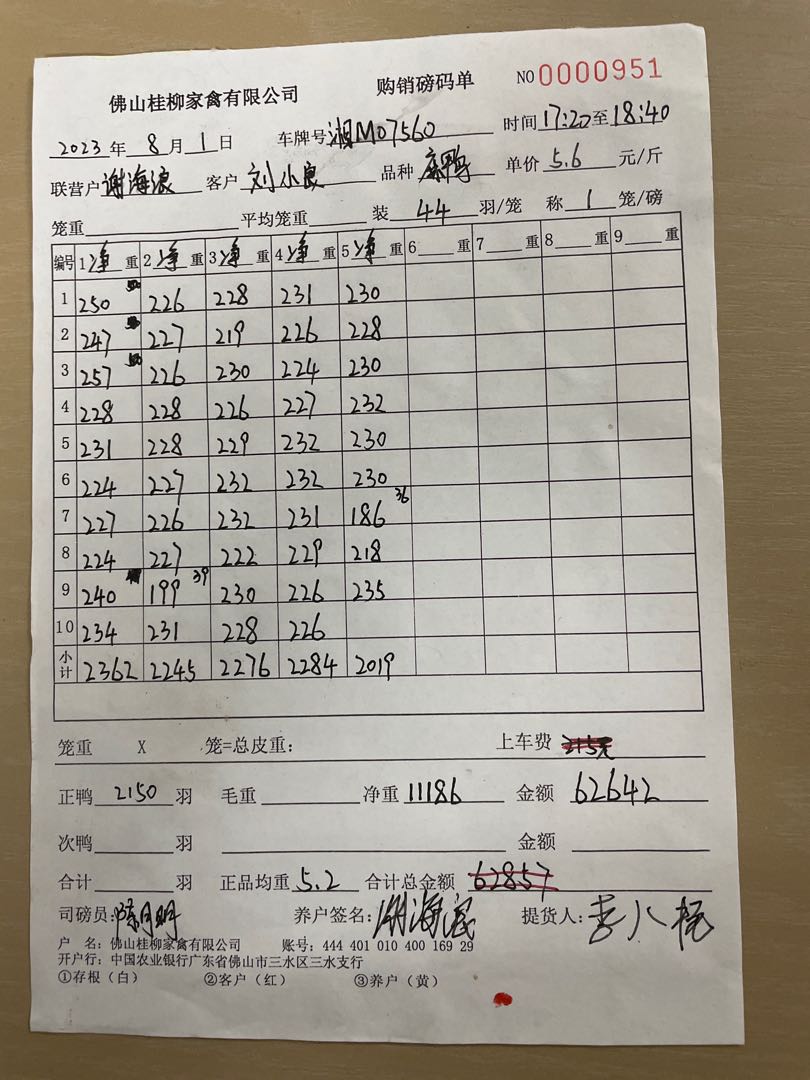 佛山桂柳家禽有限公司 购销磅码单 NO 0000951
2023年 8月 1日 车牌号 湘M07560 时间 17:20至18:40
联营户 谢海浪 客户 刘小良 品种 麻鸭 单价 5.6 元/斤
笼重 平均笼重 装 44 羽/笼 称 1 笼/磅
编号 1净重 2净重 3净重 4净重 5净重 6 重 7 重 8 重 9 重
1 250 50 226 228 231 230
2 247 227 219 226 228
3 257 50 226 230 224 230
4 228 228 226 227 232
5 231 228 229 232 230
6 224 227 232 232 230
7 227 226 232 231 186 36
8 224 227 222 229 218
9 240 199 39 230 226 235
10 234 231 228 226
小计 2362 2245 2276 2284 2019
笼重 X 笼=总皮重: 上车费 215元
正鸭 2150 羽 毛重 净重 11186 金额 62642
次鸭 羽 金额
合计 羽 正品均重 5.2 合计总金额 62857
司磅员: 陈月明 养户签名: 谢海浪 提货人: 李八
户 名: 佛山桂柳家禽有限公司 账号: 444 401 010 400 169 29
开户行: 中国农业银行广东省佛山市三水区三水支行
①存根(白) ②客户(红) ③养户(黄)